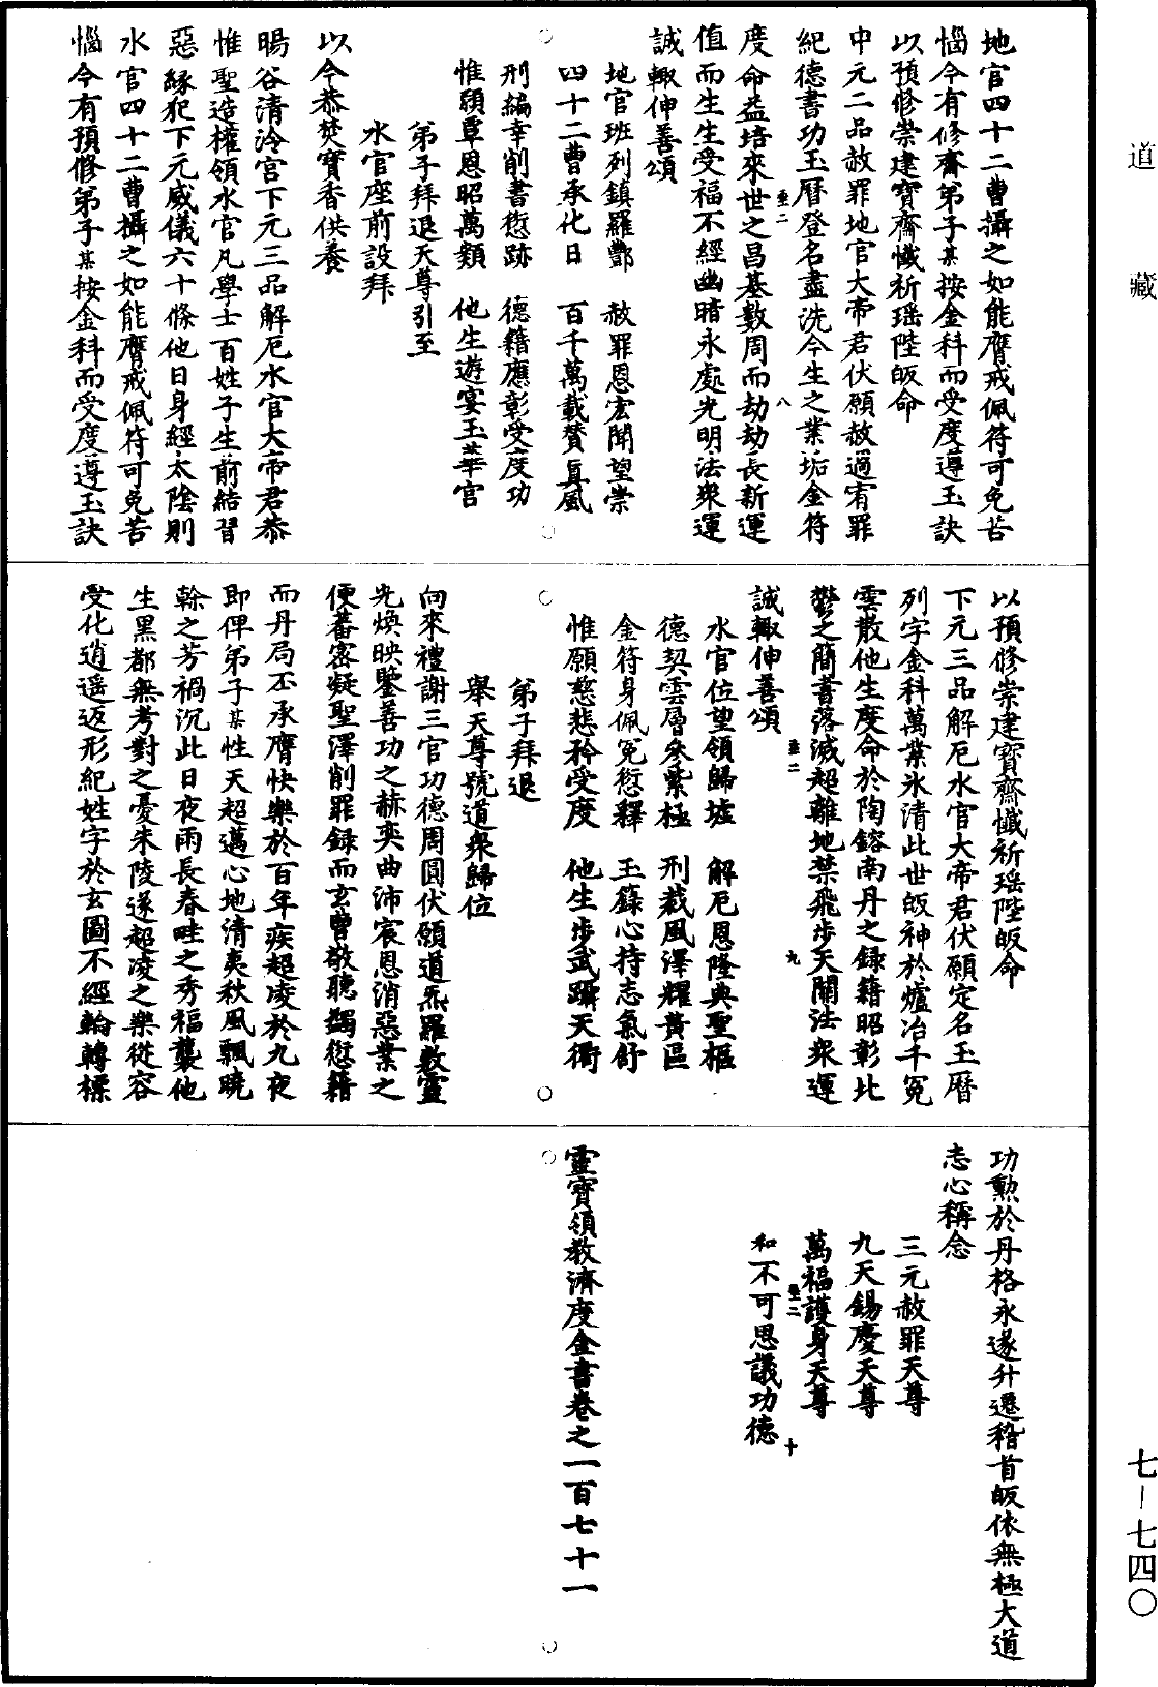 道藏
七—七四〇
地官四十二曹攝之如能膺戒佩符可免苦
惱今有修齋弟子某按金科而受度遵玉訣
以預修崇建寶齋懺祈瑶陛皈命
中元二品赦罪地官大帝君伏願赦過宥罪
紀德書功玉曆登名盡洗今生之業垢金符
度命益培來世之昌基數周而劫劫長新運
值而生生受福不經幽暗永處光明法衆運
誠輙伸善頌
地官班列鎮羅酆　赦罪恩宏聞望崇
四十二曹承化日　百千萬載贊真風
刑編幸削書愆跡　德籍應彰受度功
惟願覃恩昭萬類　他生遊宴玉華宫
弟子拜退天尊引至
水官座前設拜
以今恭焚寶香供養
暘谷清泠宫下元三品解厄水官大帝君恭
惟聖造權領水官凡學士百姓子生前結習
惡緣犯下元威儀六十條他日身經太陰則
水官四十二曹攝之如能膺戒佩符可免苦
惱今有預修弟子某按金科而受度遵玉訣
以預修崇建寶齋懺祈瑶陛皈命
下元三品解厄水官大帝君伏願定名玉曆
列字金科萬業氷清此世皈神於爐冶千冤
雲散他生度命於陶鎔南丹之録籍昭彰比
鬱之簡書落滅超離地禁飛步天關法衆運
誠輙伸善頌
水官位望領歸墟　解厄恩隆典聖樞
德契雲層參紫極　刑裁風澤耀黄區
金符身佩冤愆釋　玉籙心持志氣舒
惟願慈悲矜受度　他生步武躡天衢
弟子拜退
舉天尊號道衆歸位
向來禮謝三官功德周圓伏願道炁羅敷靈
光煥映鑒善功之赫奕曲沛宸恩消惡業之
便蕃密凝聖澤削罪録而玄曹敬聽蠲愆籍
而丹局丕承膺快樂於百年疾超凌於九夜
即俾弟子某性天超邁心地清夷秋風飄曉
榦之芳禍沉此日夜雨長春畦之秀福襲他
生黑都無考對之憂朱陵遂超凌之樂從容
受化逍遥返形紀姓字於玄圖不經輪轉標
功勲於丹格永遂升遷稽首皈依無極大道
志心稱念
三元赦罪天尊
九天錫慶天尊
萬福護身天尊
和一不可思議功德
靈寶領教濟度金書卷之一百七十一